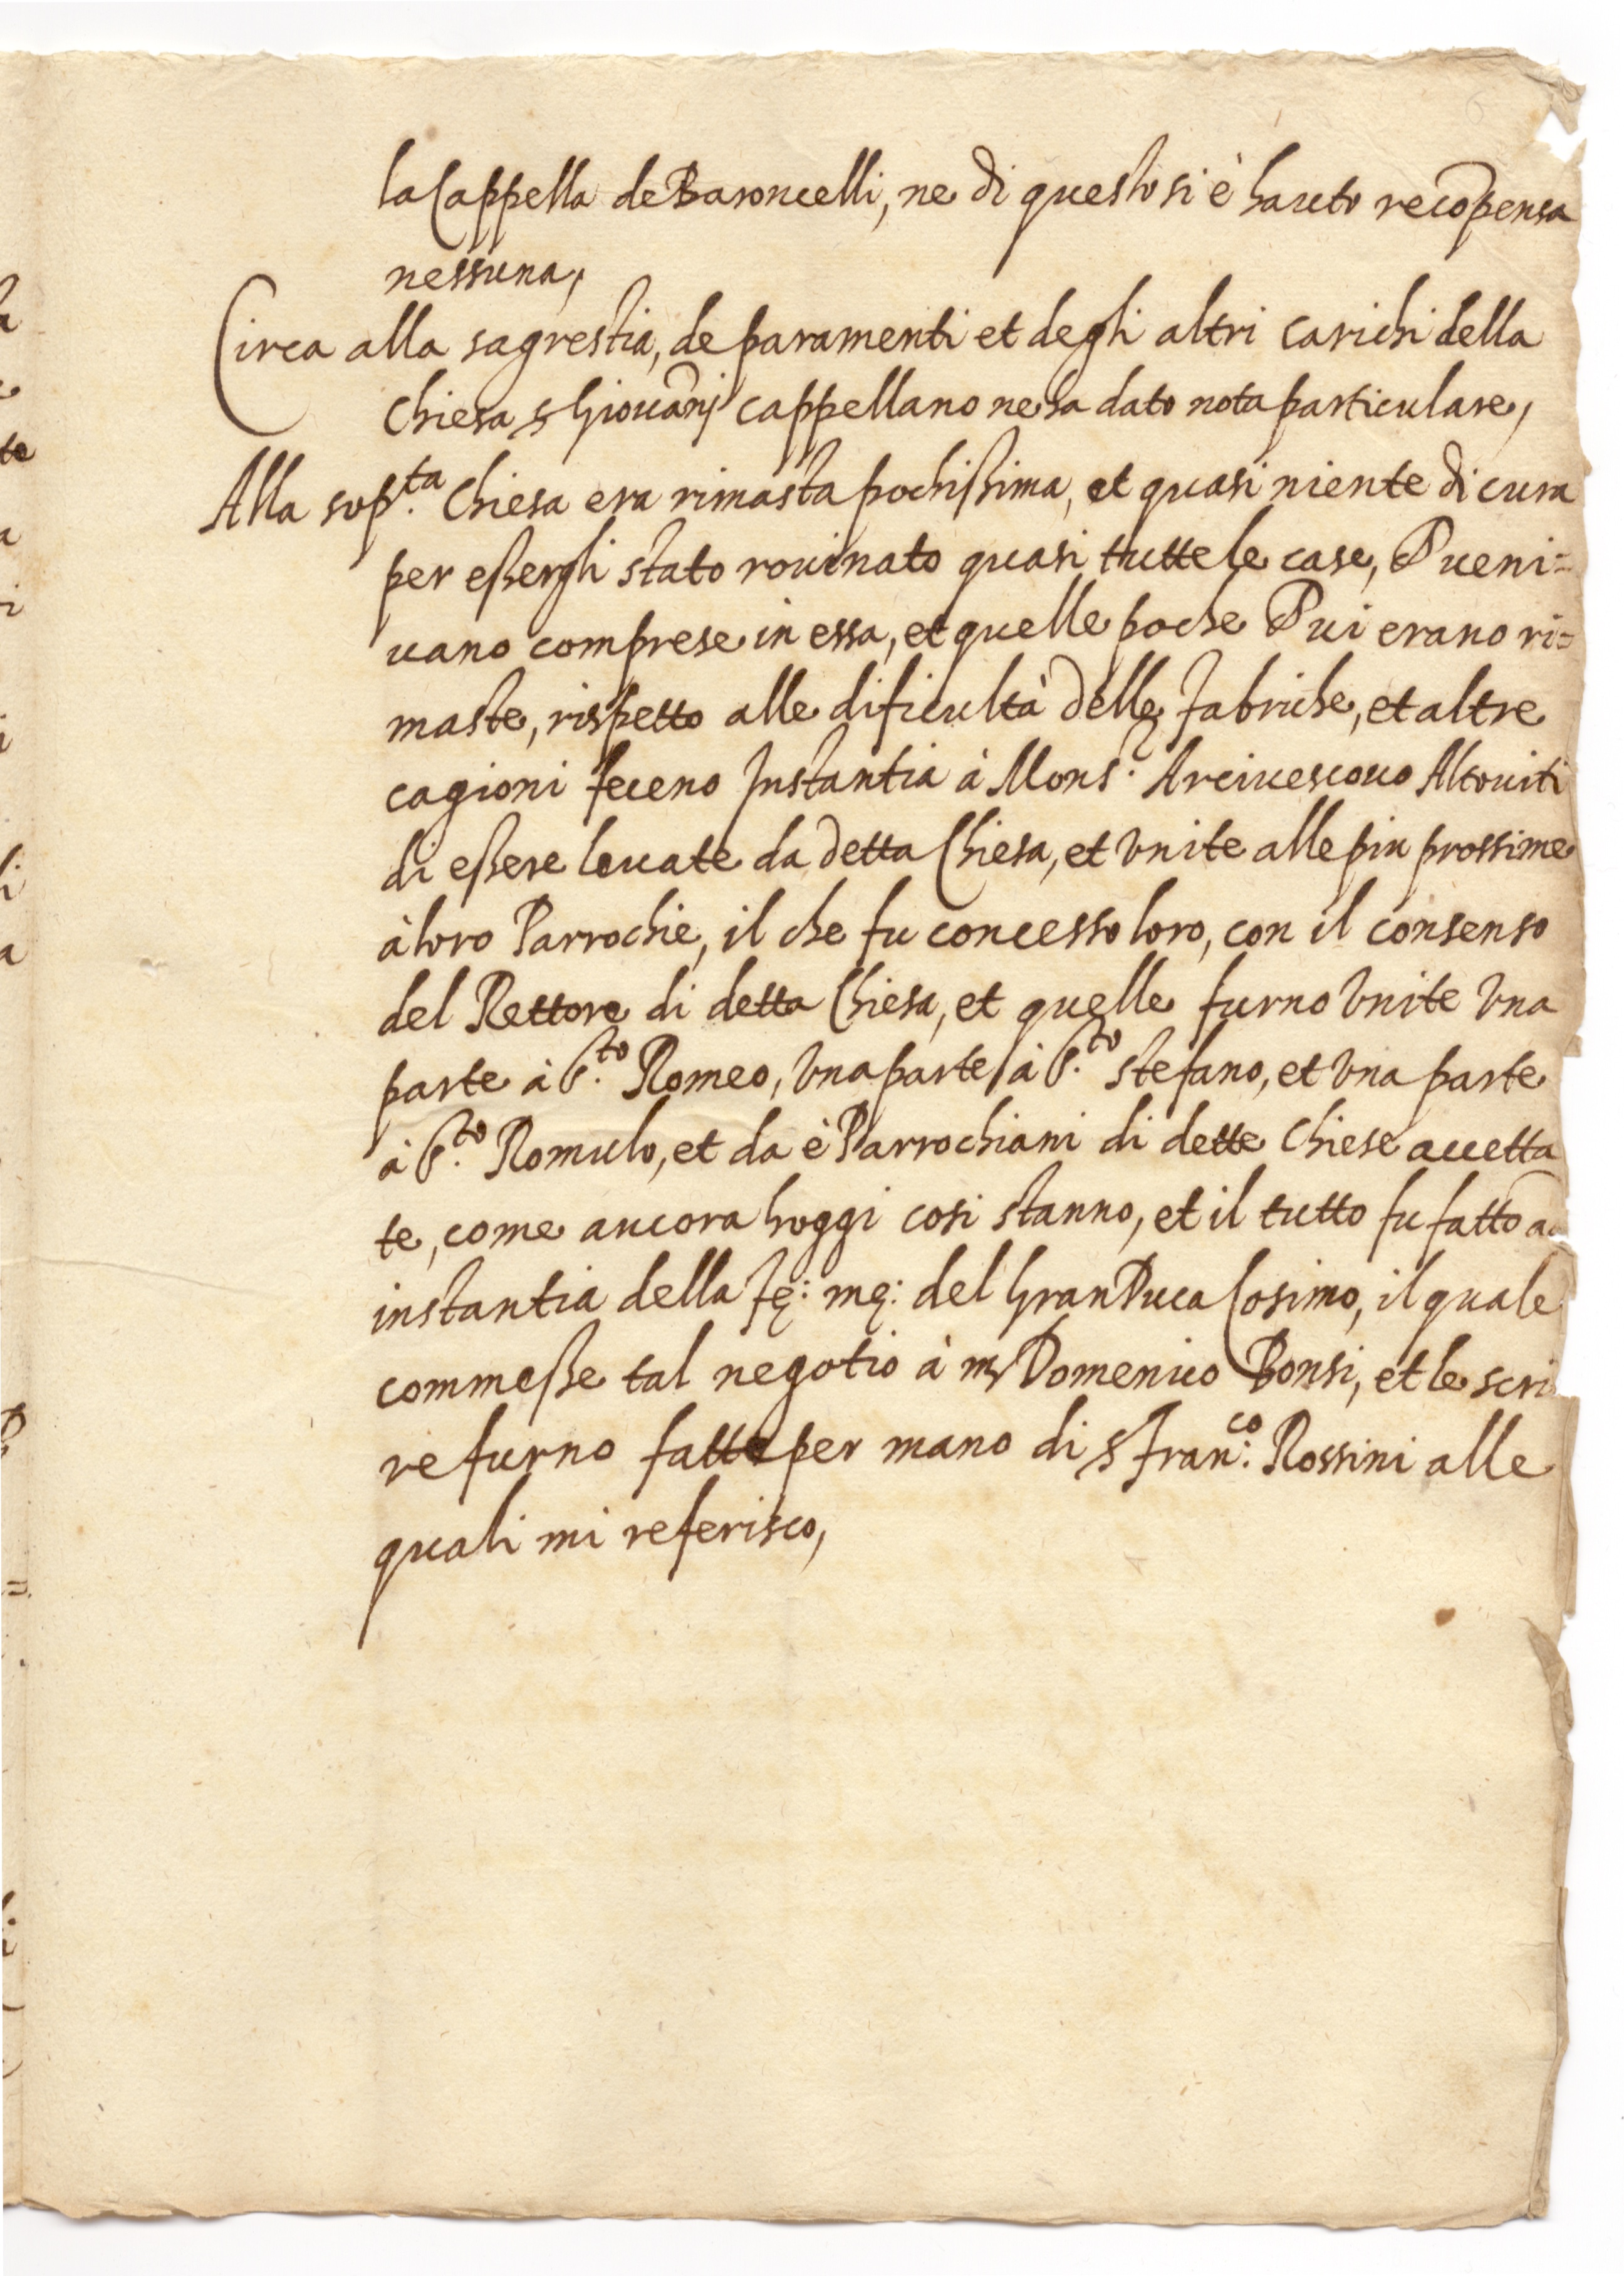 la Cappella de Baroncelli, ne di questo si è hauto recõpensa
nessuna,
Circa alla sagrestia, de paramenti et degli altri carichi della
Chiesa s Giouãnj cappellano ne ha dato nota particulare,
Alla sop.ta Chiesa era rimasta pochißima, et quasi niente di cura
per eßergli stato rouinato quasi tutte le case, ueni=
uano comprese in essa, et quelle poche ui erano ri=
maste, rispetto alle dificultà delle fabriche, et altre
cagioni feceno Instantia à Mons.r Arciuescouo Altouiti
di eßere leuate da detta Chiesa, et vnite alle piu prossime
à loro Parrochie, il che fu concesso loro, con il consenso
del Rettore di detta Chiesa, et quelle furno vnite vna
parte à S.to Romeo, vna parte à S.to Stefano, et vna parte
à S.to Romulo, et da è Parrochiani di dette Chiese accetta
te, come ancora hoggi cosi stanno, et il tutto fu fatto
instantia della fe: me: del Gran Duca Cosimo, il quale
commeße tal negotio à mr Domenico Bonsi, et le
re furno fatte per mano di s Fran.co Rossini alle
quali mi referisco,